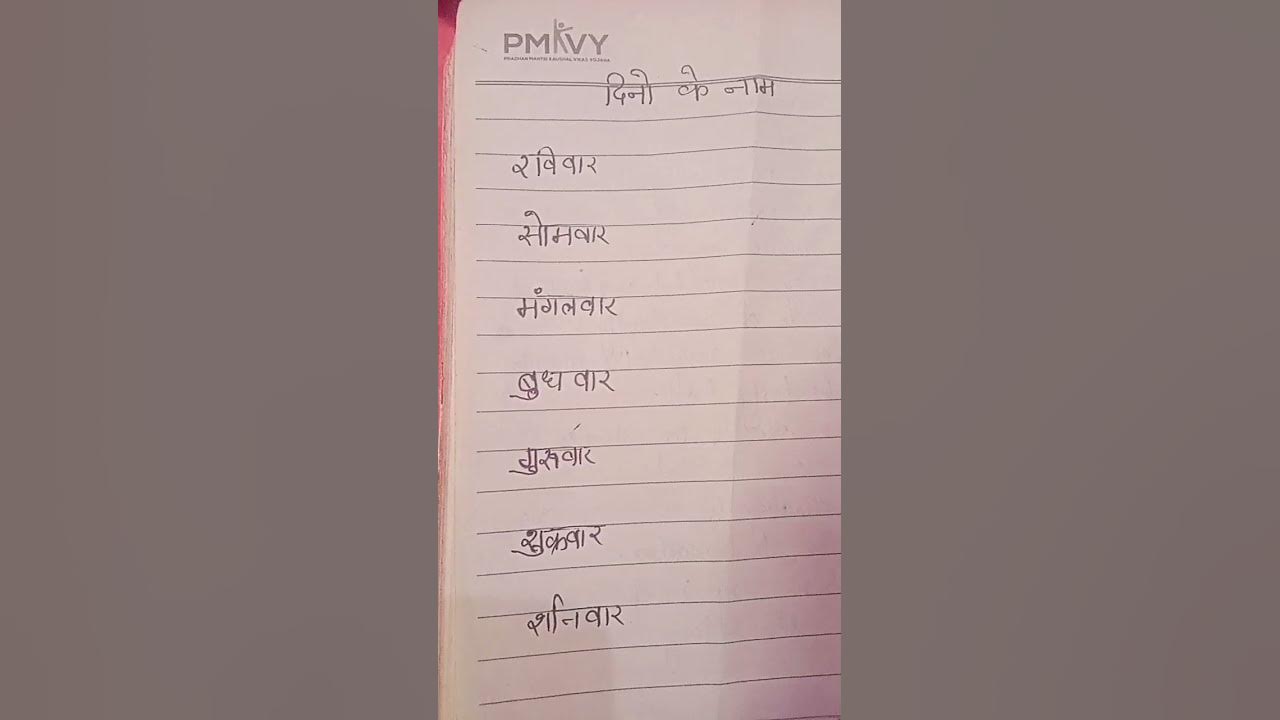 PMKVY
PRADHAN MANTRI KAUSHAL VIKAS YOJANA
दिनो के नाम
रविवार
सोमवार
मंगलवार
बुधवार
गुरुवार
शुक्रवार
शनिवार